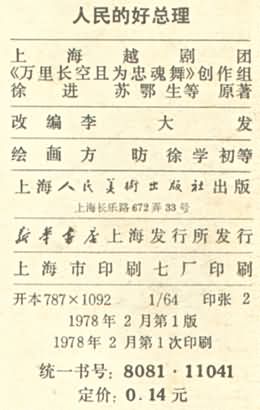 人民的好总理
上海越剧团
《万里长空且为忠魂舞》创作组
徐进 苏鄂生等 原著
改编 李大发
绘画 方昉 徐学初等
上海人民美術出版社出版
上海长乐路672弄33号
新华書店上海发行所发行
上海市印刷七厂印刷
开本787×1092 1/64 印张 2
1978年2月第1版
1978年2月第1次印刷
统一书号：8081·11041
定价：0.14元